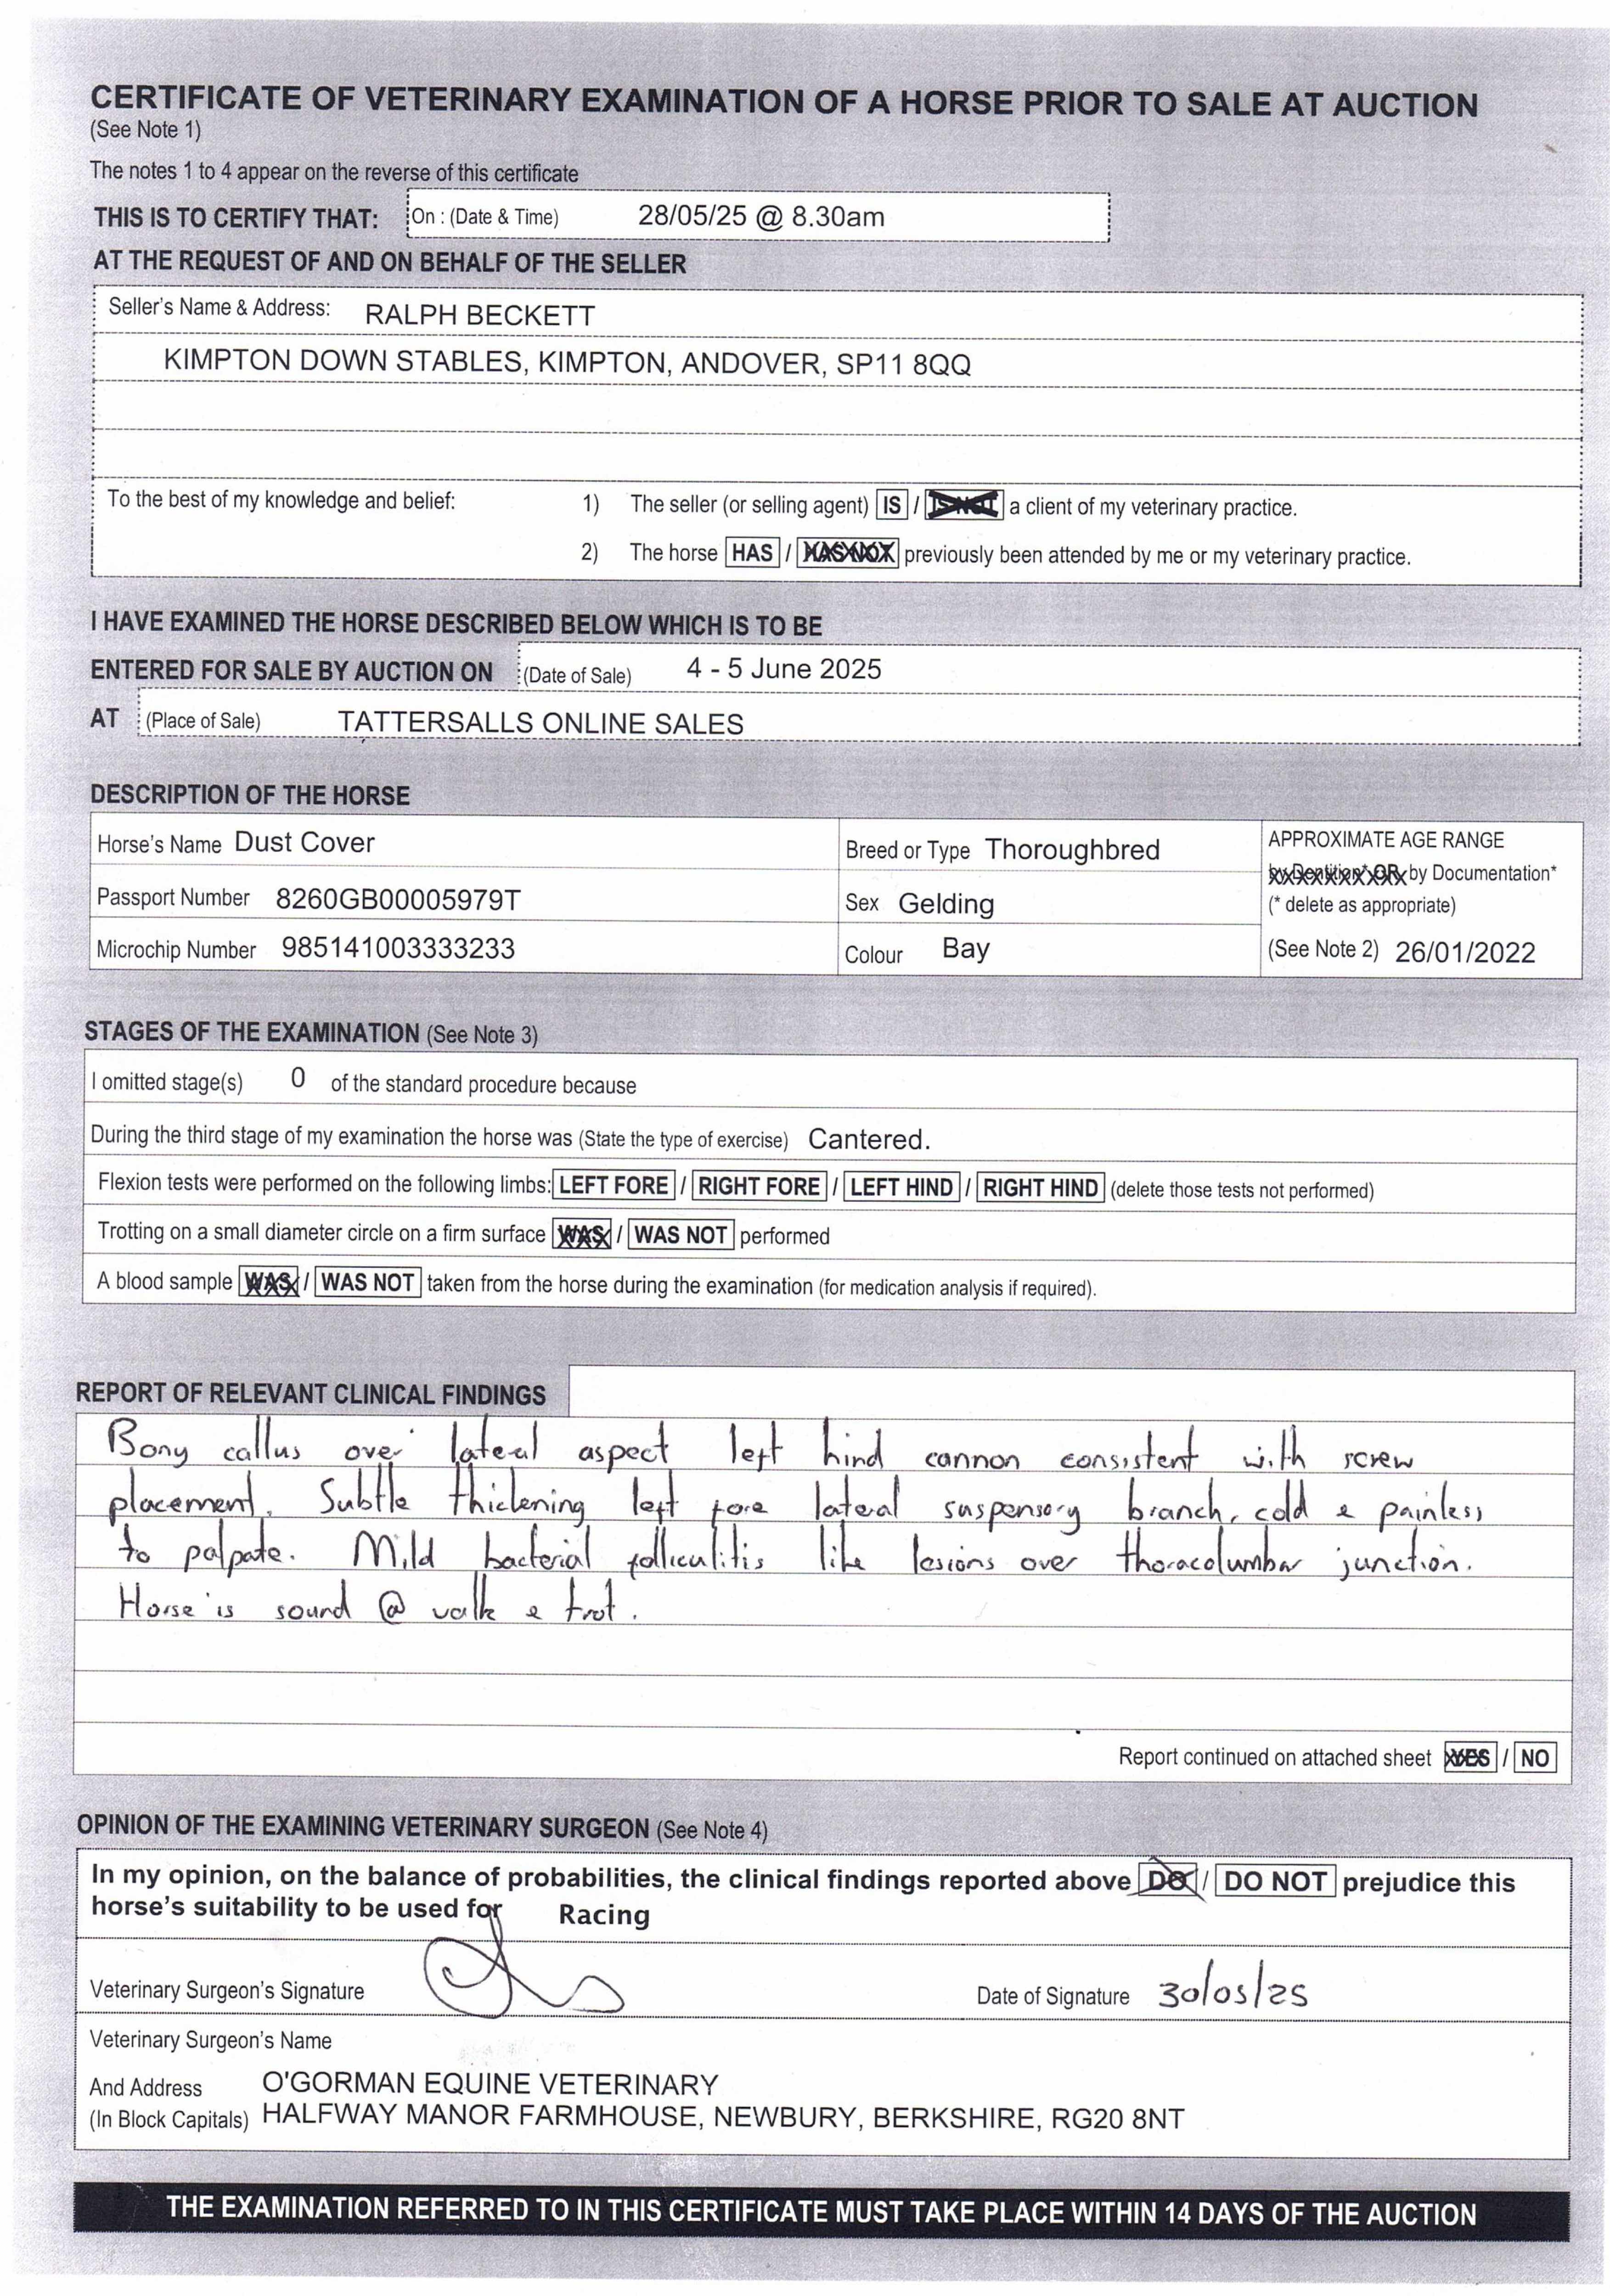 CERTIFICATE OF VETERINARY EXAMINATION OF A HORSE PRIOR TO SALE AT AUCTION
(See Note 1)
The notes 1 to 4 appear on the reverse of this certificate
THIS IS TO CERTIFY THAT: On : (Date & Time) 28/05/25 @ 8.30am
AT THE REQUEST OF AND ON BEHALF OF THE SELLER
Seller's Name & Address: RALPH BECKETT
KIMPTON DOWN STABLES, KIMPTON, ANDOVER, SP11 8QQ
To the best of my knowledge and belief: 1) The seller (or selling agent) IS / IS NOT a client of my veterinary practice.
2) The horse HAS / HAS NOT previously been attended by me or my veterinary practice.
I HAVE EXAMINED THE HORSE DESCRIBED BELOW WHICH IS TO BE
ENTERED FOR SALE BY AUCTION ON (Date of Sale) 4 - 5 June 2025
AT (Place of Sale) TATTERSALLS ONLINE SALES
DESCRIPTION OF THE HORSE
Horse's Name Dust Cover
Breed or Type Thoroughbred
APPROXIMATE AGE RANGE
by Dentition* OR by Documentation*
(* delete as appropriate)
Passport Number 8260GB00005979T
Sex Gelding
Microchip Number 985141003333233
Colour Bay
(See Note 2) 26/01/2022
STAGES OF THE EXAMINATION (See Note 3)
I omitted stage(s) 0 of the standard procedure because
During the third stage of my examination the horse was (State the type of exercise) Cantered.
Flexion tests were performed on the following limbs: LEFT FORE / RIGHT FORE / LEFT HIND / RIGHT HIND (delete those tests not performed)
Trotting on a small diameter circle on a firm surface WAS / WAS NOT performed
A blood sample WAS / WAS NOT taken from the horse during the examination (for medication analysis if required).
REPORT OF RELEVANT CLINICAL FINDINGS
Bony callus over lateral aspect left hind cannon consistent with screw
placement. Subtle thickening left fore lateral suspensory branch, cold & painless
to palpate. Mild bacterial folliculitis like lesions over thoracolumbar junction.
Horse is sound @ walk & trot.
Report continued on attached sheet YES / NO
OPINION OF THE EXAMINING VETERINARY SURGEON (See Note 4)
In my opinion, on the balance of probabilities, the clinical findings reported above DO / DO NOT prejudice this
horse's suitability to be used for Racing
Veterinary Surgeon's Signature
Date of Signature 30/05/25
Veterinary Surgeon's Name
And Address O'GORMAN EQUINE VETERINARY
(In Block Capitals) HALFWAY MANOR FARMHOUSE, NEWBURY, BERKSHIRE, RG20 8NT
THE EXAMINATION REFERRED TO IN THIS CERTIFICATE MUST TAKE PLACE WITHIN 14 DAYS OF THE AUCTION